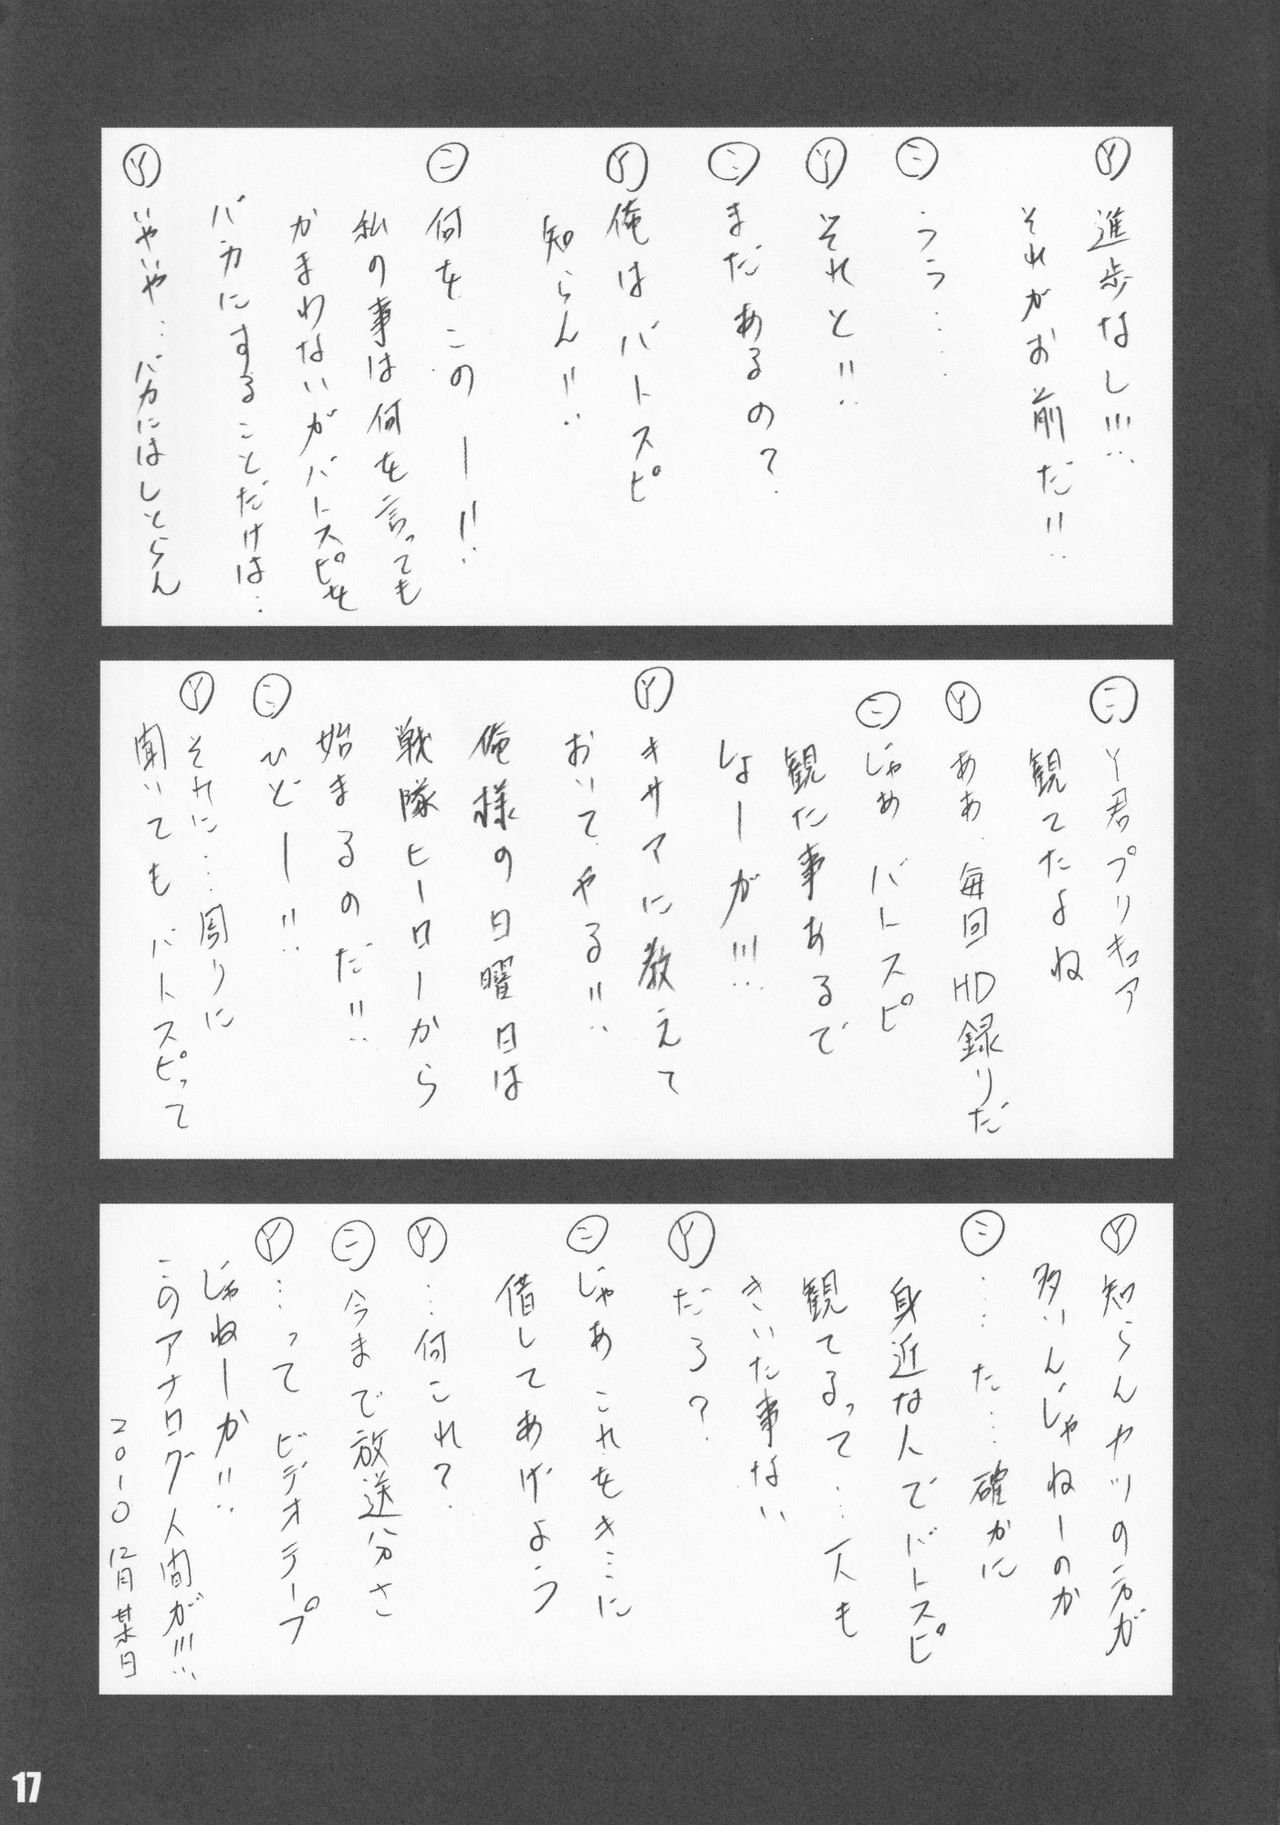 Ⓨ進歩なし!!!
それがお前だ!!
㊁うう‥‥
Ⓨそれと!!
㊁まだあるの?
Ⓨ俺はバトスピ
知らん!!
㊁何をこのー!!
私の事は何を言っても
かまわないがバトスピを
バカにすることだけは‥
Ⓨいやいや‥バカにはしとらん
㊁Y君プリキュア
観てたよね
Ⓨああ 毎回HD録りだ
㊁じゃあバトスピ
観た事あるで
しょーが!!!
Ⓨキサマに教えて
おいてやる!!
俺様の日曜日は
戦隊ヒーローから
始まるのだ!!
㊁ひどー!!
Ⓨそれに…周りに
聞いてもバトスピって
Ⓨ知らんヤツの方が
多いんじゃねーのか
㊁‥‥た…確かに
身近な人でバトスピ
観てるって…一人も
きいた事ない
Ⓨだろ?
㊁じゃあこれをキ…に
借してあげよう
Ⓨ…何これ?
㊁今まで放送分さ
Ⓨ…ってビデオテープ
じゃねーか!!
このアナログ人間が!!!
2010 12月 某日
17